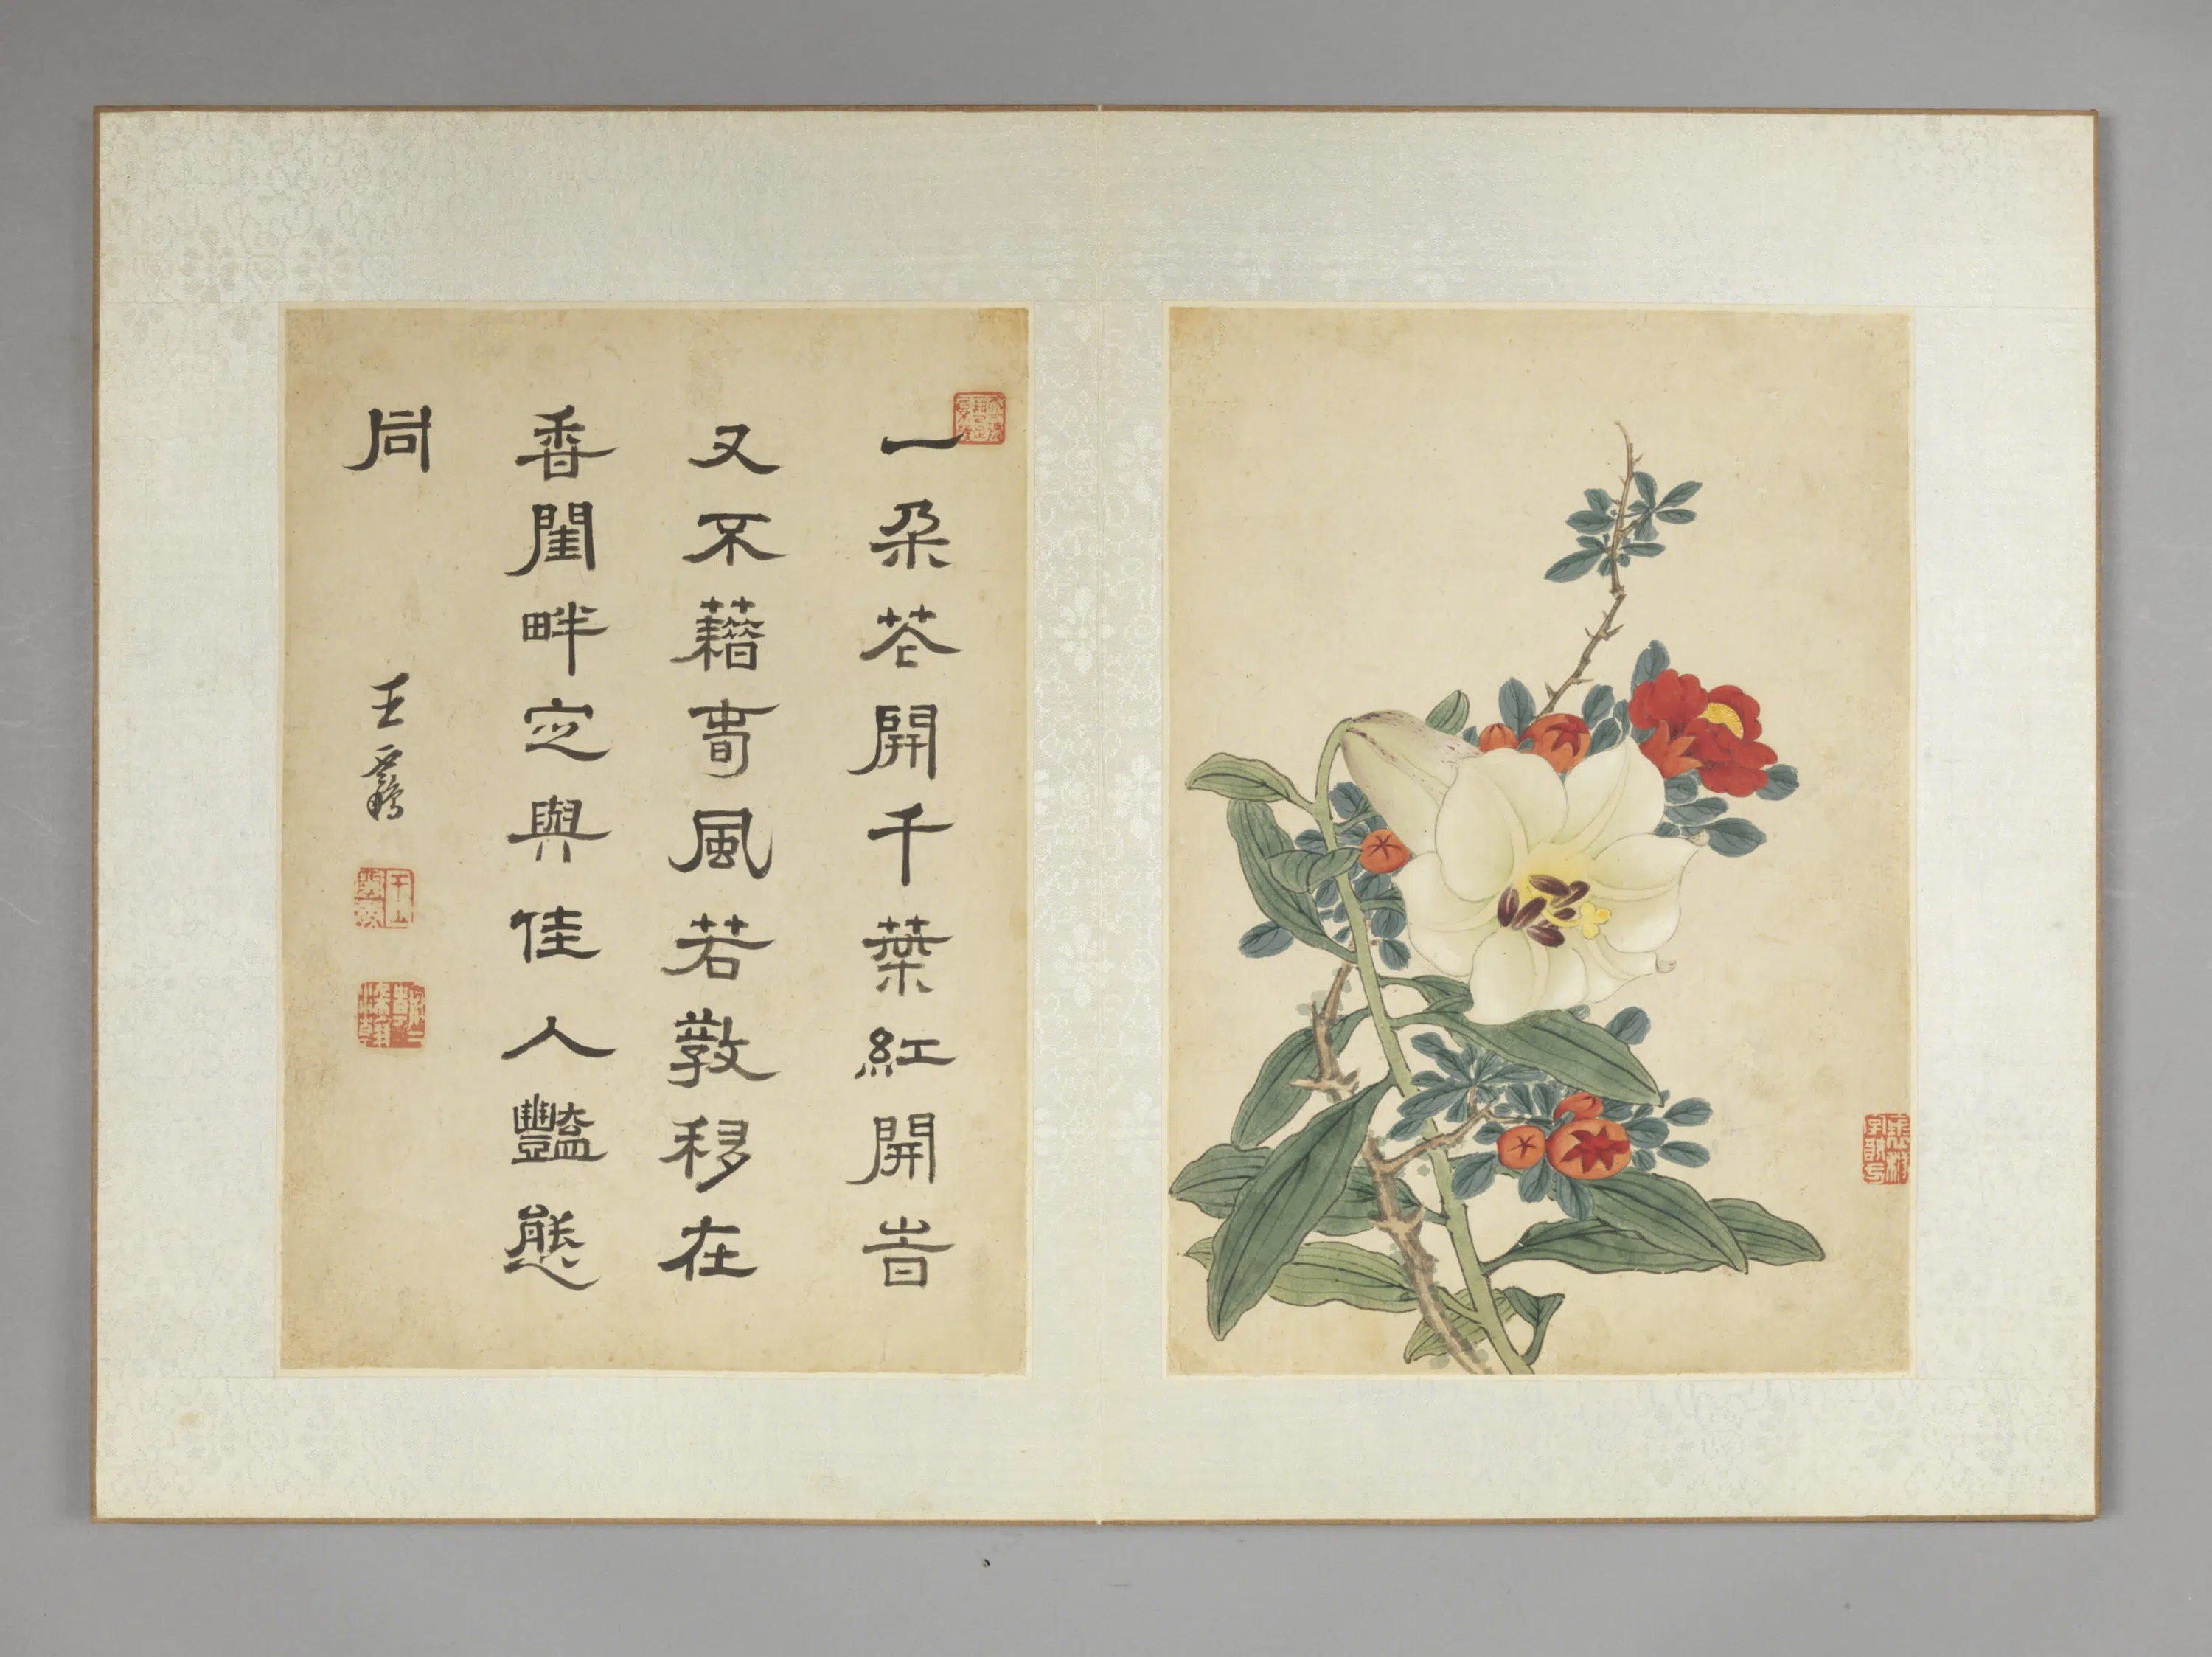 一朵芲開千葉紅開旹
又不藉春風若教移在
香閨畔定與佳人豔態
同
王